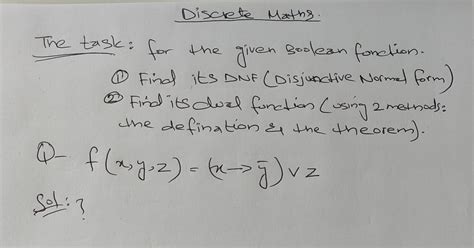 Discrete Maths.
The task: for the given Boolean fonction.
① Find its DNF (Disjunctive Normal form)
② Find its dual function (using 2 methods:
the defination & the theorem).
Q- f(x,y,z) = (x→ȳ) ∨ z
Sol:?